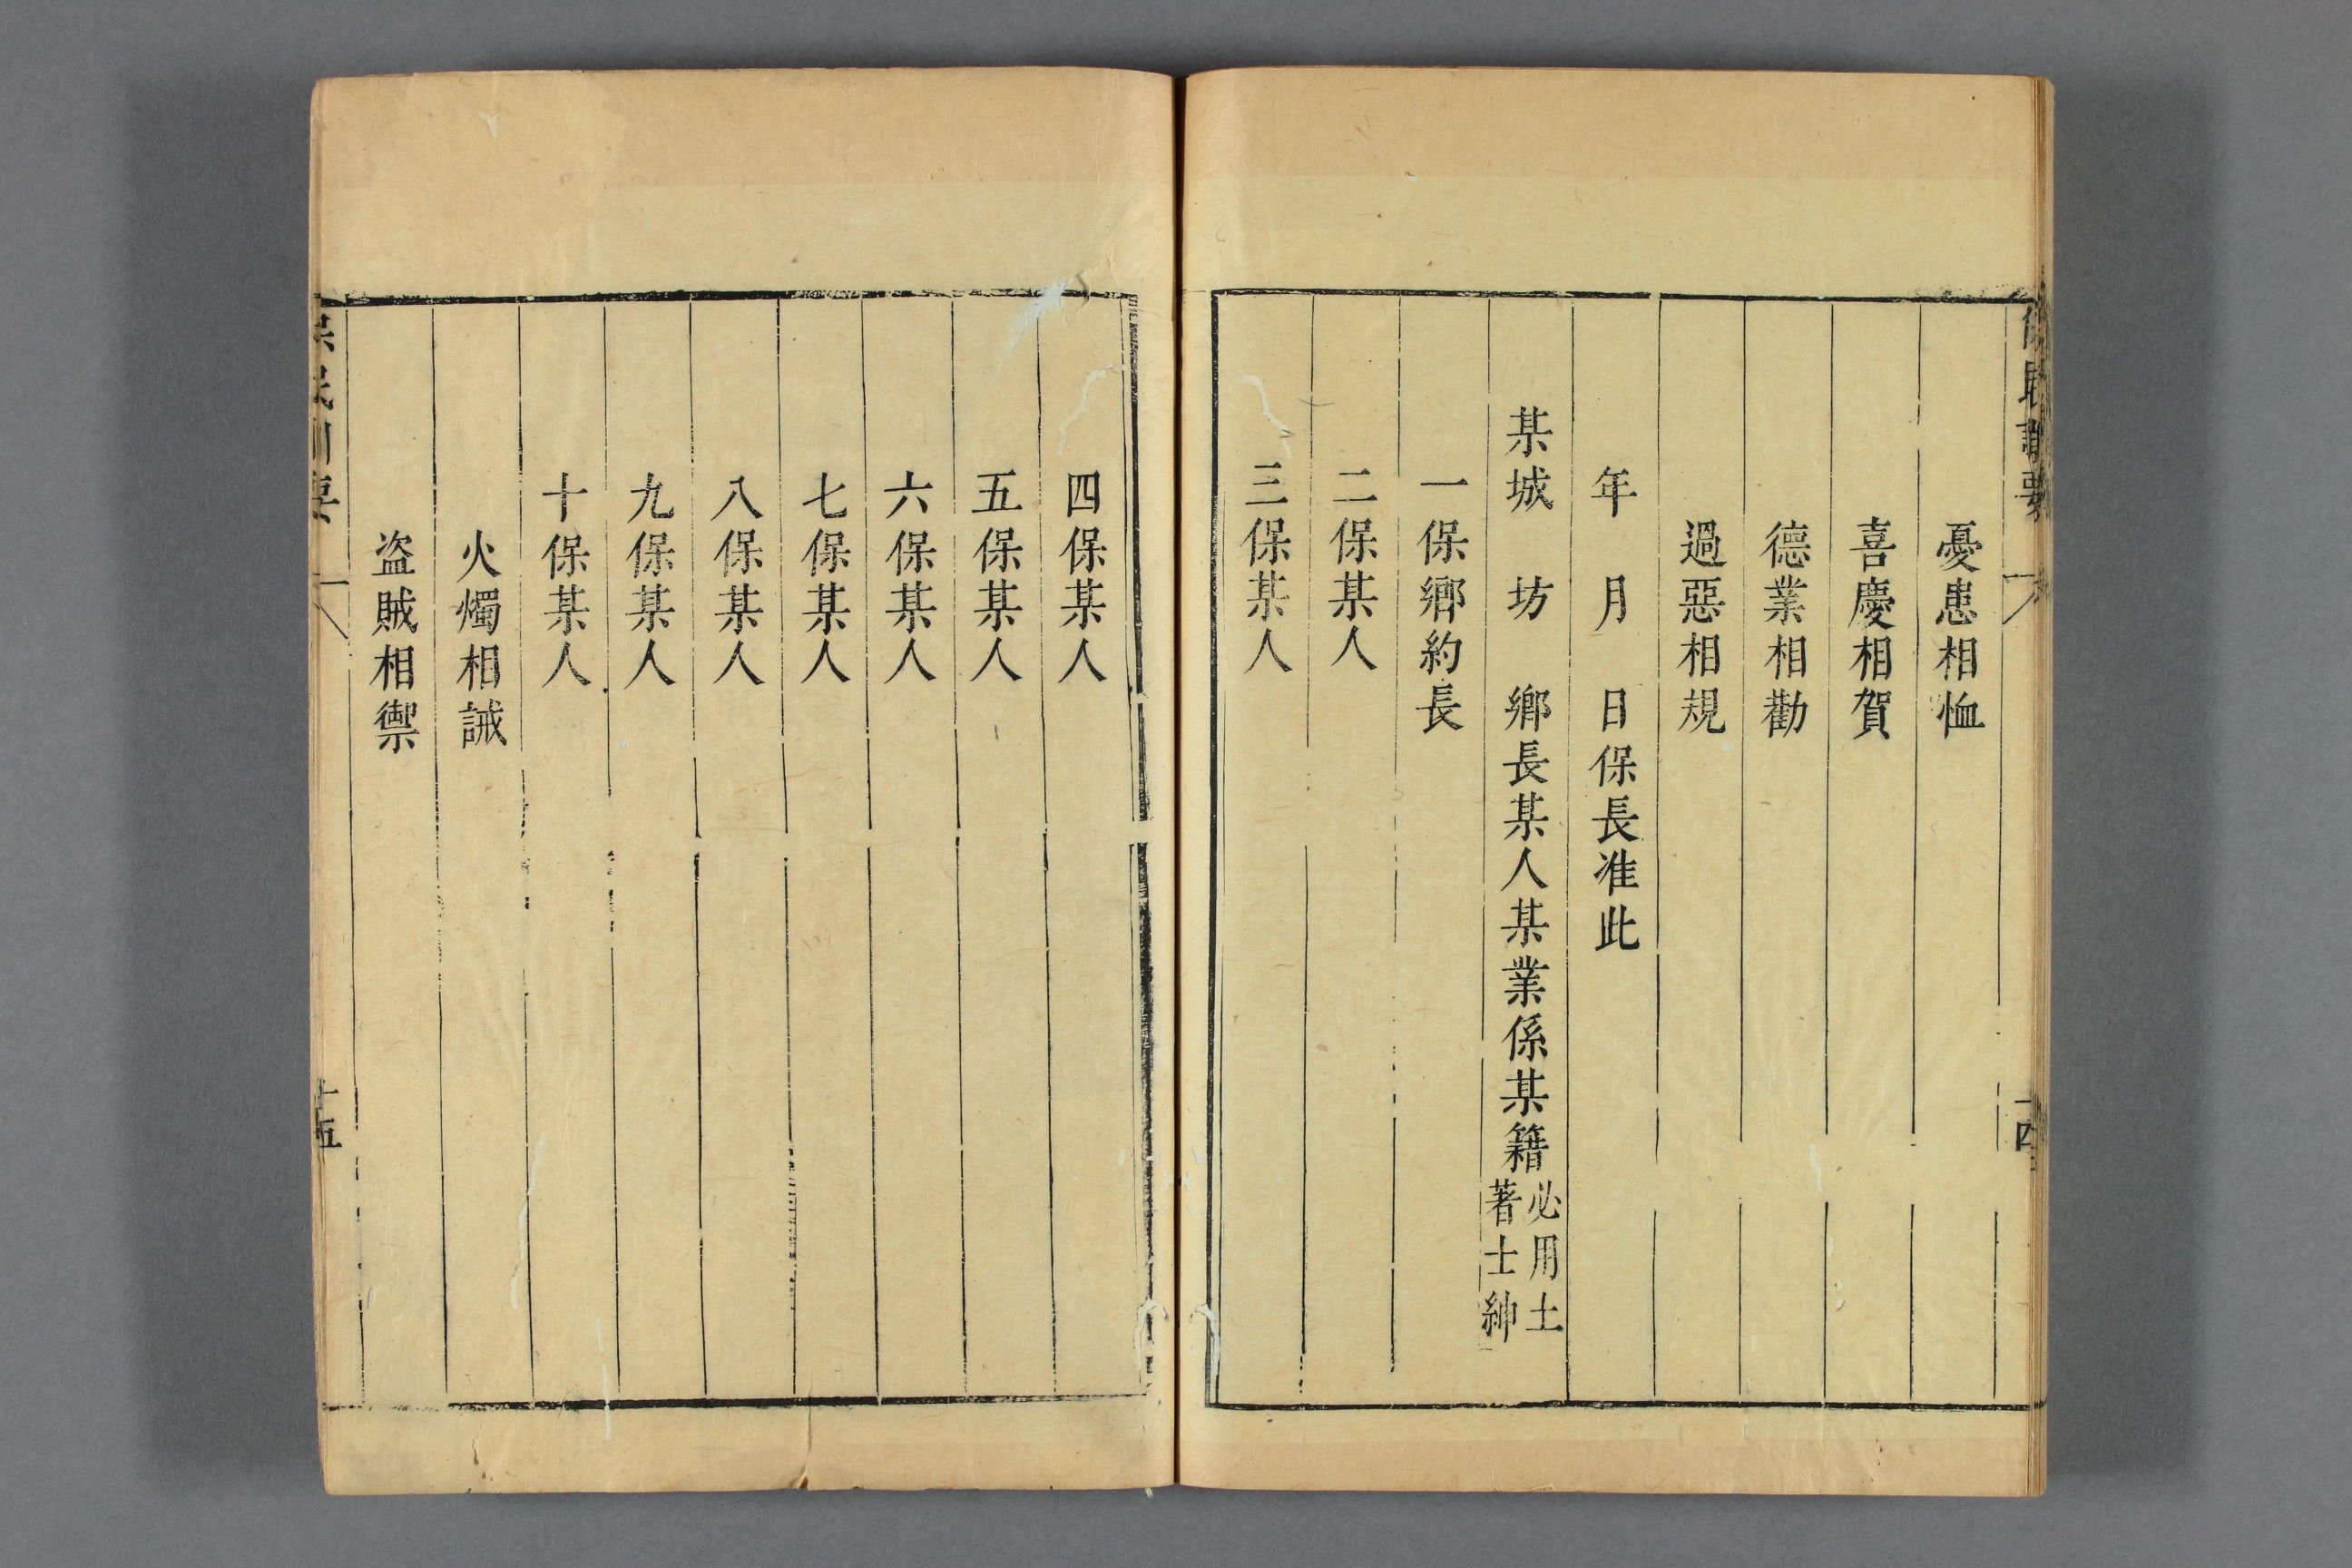 保民訓要
十四
憂患相恤
喜慶相賀
德業相勸
過惡相規
年　月　日保長准此
某城　坊　鄉長某人某業係某籍必用土著士紳
一保鄉約長
二保某人
三保某人
四保某人
五保某人
六保某人
七保某人
八保某人
九保某人
十保某人
火燭相誡
盜賊相禦
保民訓要
十五